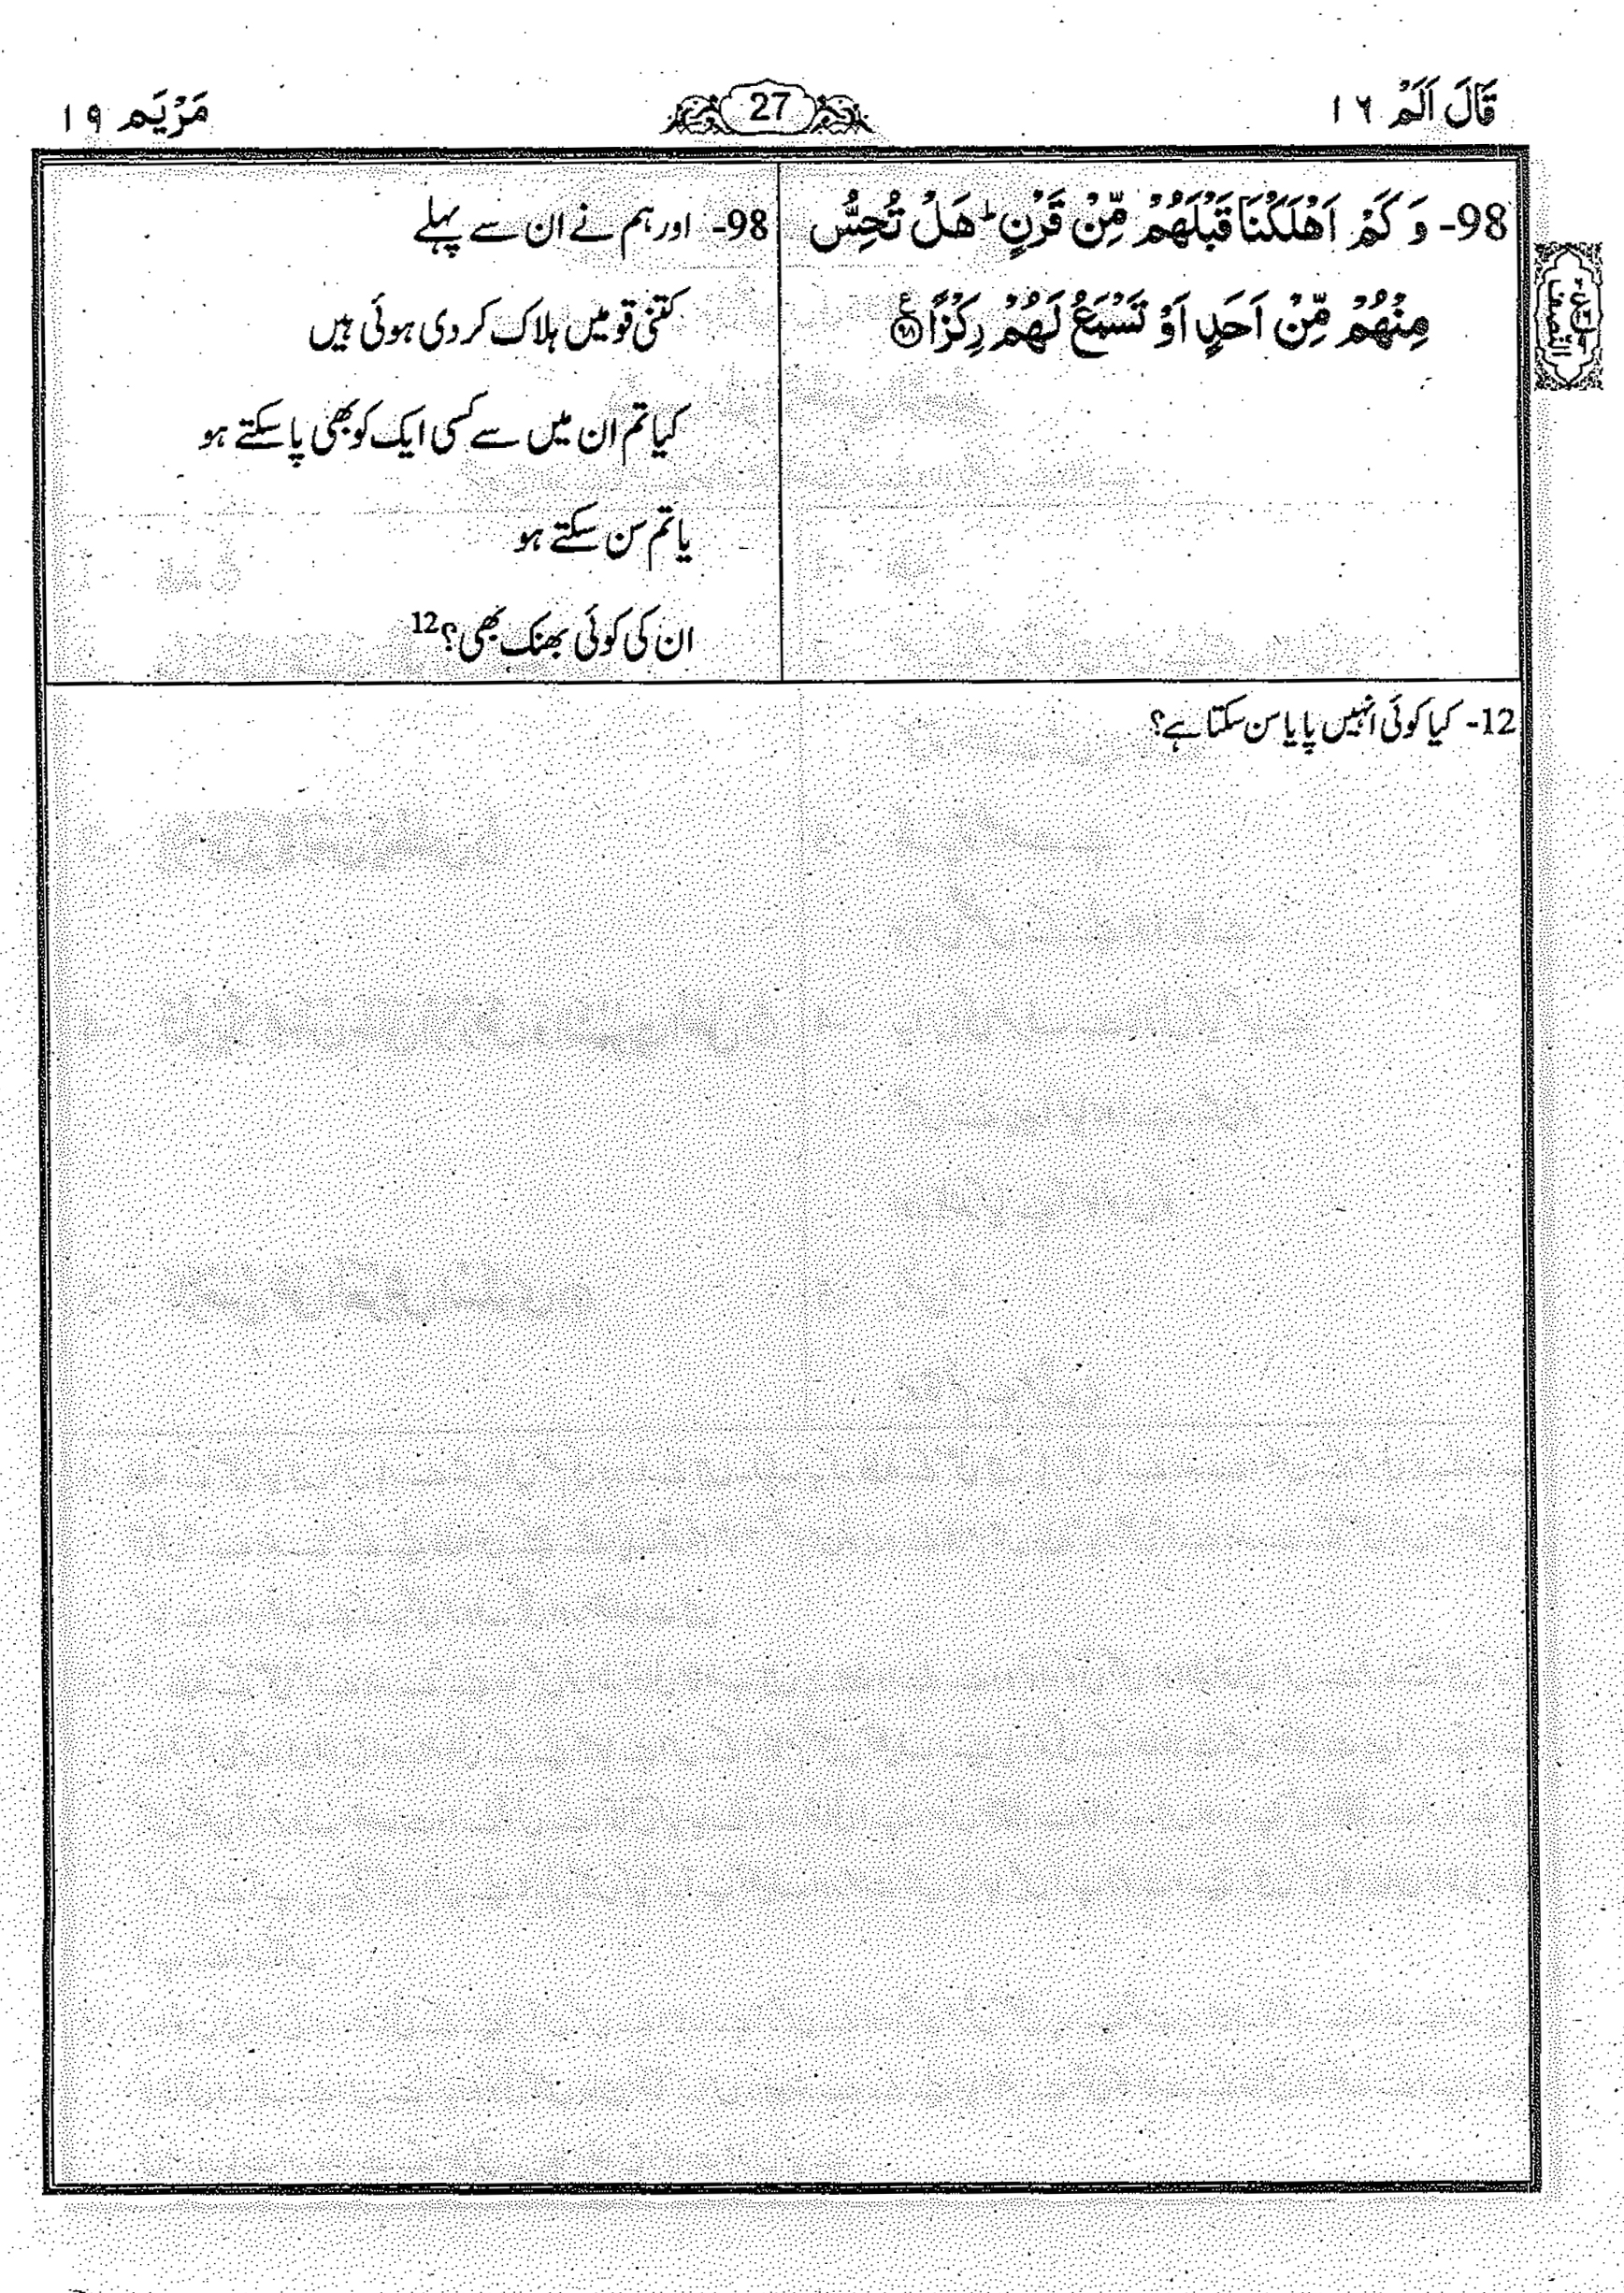 قَالَ اَلَمْ ١٦
27
مَرْيَم ١٩
98- وَ كَمْ اَهْلَكْنَا قَبْلَهُمْ مِّنْ قَرْنٍ ؕ هَلْ تُحِسُّ
مِنْهُمْ مِّنْ اَحَدٍ اَوْ تَسْمَعُ لَهُمْ رِكْزًا ۧ ﴿٩٨﴾
98- اور ہم نے ان سے پہلے
کتنی قومیں ہلاک کر دی ہوئی ہیں
کیا تم ان میں سے کسی ایک کو بھی پا سکتے ہو
یا تم سن سکتے ہو
ان کی کوئی بھنک بھی؟ 12
12- کیا کوئی انہیں پا یا سن سکتا ہے؟